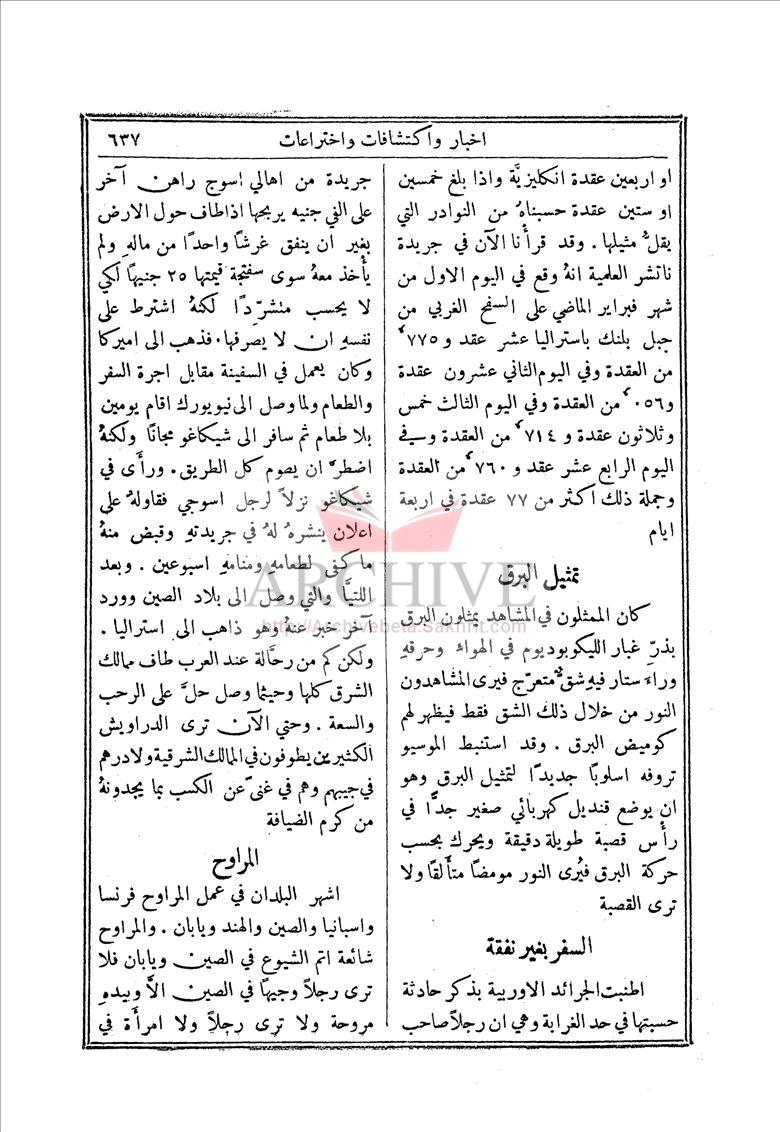 اخبار واكتشافات واختراعات
٦٣٧
او اربعين عقدة انكليزيَّة واذا بلغ خمسين
او ستين عقدة حسبناهُ من النوادر التي
يقلُّ مثيلها . وقد قرأنا الآن في جريدة
ناتشر العلمية انهُ وقع في اليوم الاول من
شهر فبراير الماضي على السفح الغربي من
جبل بلنك باستراليا عشر عقد و ٧٧٥٬
من العقدة وفي اليوم الثاني عشرون عقدة
و٠٥٦٬ من العقدة وفي اليوم الثالث خمس
وثلاثون عقدة و ٧١٤٬ من العقدة وفي
اليوم الرابع عشر عقد و ٧٦٠٬ من العقدة
وجملة ذلك اكثر من ٧٧ عقدة في اربعة
ايام
تمثيل البرق
كان الممثلون في المشاهد يمثلون البرق
بذرّ غبار الليكوبوديوم في الهواء وحرقهِ
وراء ستار فيهِ شقٌّ متعرّج فيرى المشاهدون
النور من خلال ذلك الشق فقط فيظهر لهم
كوميض البرق . وقد استنبط الموسيو
تروفه اسلوبًا جديدًا لتمثيل البرق وهو
ان يوضع قنديل كهربائي صغير جدًّا في
رأس قصبة طويلة دقيقة ويحرك بحسب
حركة البرق فيُرى النور مومضًا متألقًا ولا
ترى القصبة
السفر بغير نفقة
اطنبت الجرائد الاوربية بذكر حادثة
حسبتها في حد الغرابة وهي ان رجلاً صاحب
جريدة من اهالي اسوج راهن آخر
على الفي جنيه يربحها اذا طاف حول الارض
بغير ان ينفق غرشًا واحدًا من مالهِ ولم
يأخذ معهُ سوى سفتجة قيمتها ٢٥ جنيهًا لكي
لا يحسب متشرّدًا لكنهُ اشترط على
نفسهِ ان لا يصرفها . فذهب الى اميركا
وكان يعمل في السفينة مقابل اجرة السفر
والطعام ولما وصل الى نيويورك اقام يومين
بلا طعام ثم سافر الى شيكاغو مجانًا ولكنهُ
اضطرّ ان يصوم كل الطريق . ورأى في
شيكاغو نزلاً لرجل اسوجي فقاولهُ على
اعلان ينشرهُ لهُ في جريدتهِ وقبض منهُ
ما كفى لطعامهِ ومنامهِ اسبوعين . وبعد
اللتيَّا والتي وصل الى بلاد الصين وورد
آخر خبر عنهُ وهو ذاهب الى استراليا .
ولكن كم من رحَّالة عند العرب طاف ممالك
الشرق كلها وحيثما وصل حلَّ على الرحب
والسعة . وحتى الآن ترى الدراويش
الكثيرين يطوفون في الممالك الشرقية ولا درهم
في جيبهم وهم في غنىً عن الكسب بما يجدونهُ
من كرم الضيافة
المراوح
اشهر البلدان في عمل المراوح فرنسا
واسبانيا والصين والهند ويابان . والمراوح
شائعة اتم الشيوع في الصين ويابان فلا
ترى رجلاً وجيهًا في الصين الاَّ وبيدهِ
مروحة ولا ترى رجلاً ولا امرأة في
ARCHIVE
http://Archivebeta.Sakhrit.com